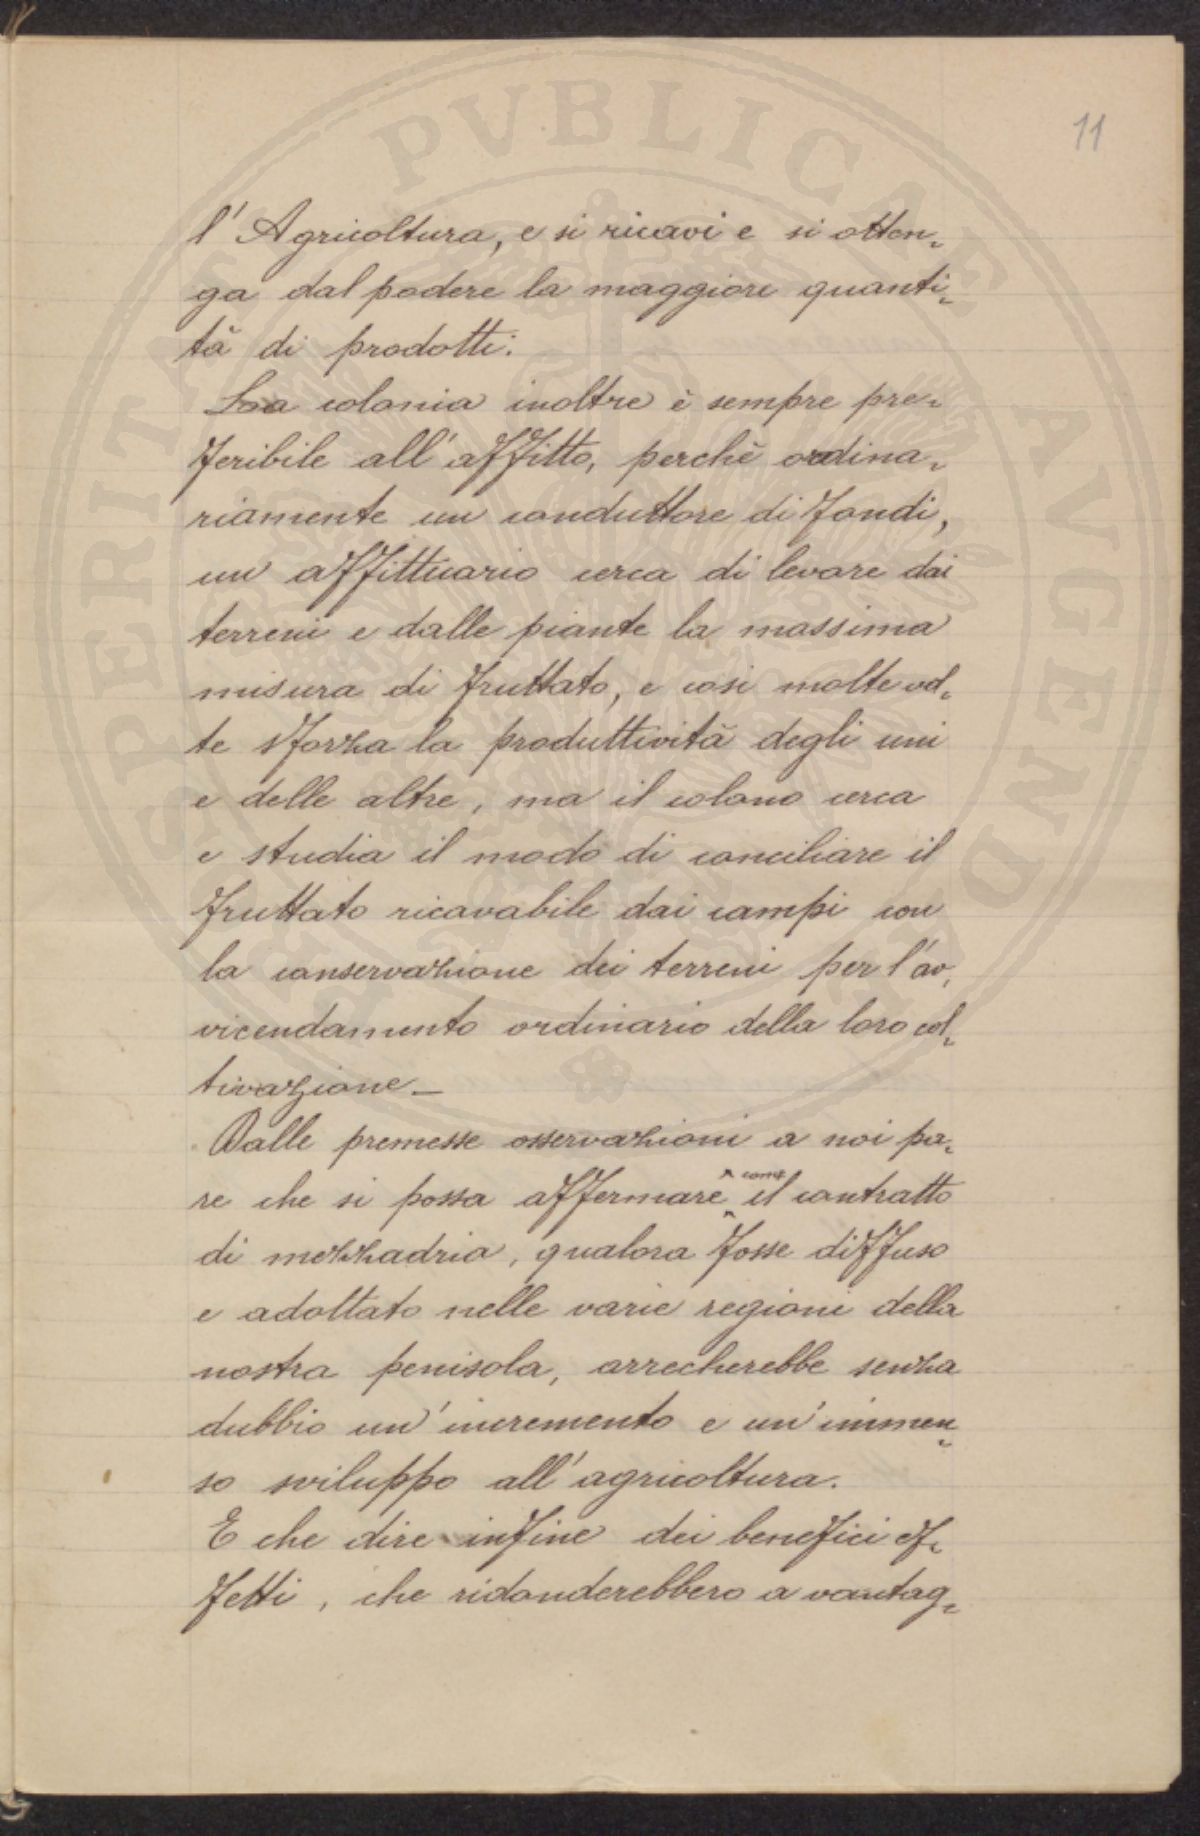 11
l'Agricoltura, e si ricavi e si otten-
ga dal podere la maggiore quanti-
tà di prodotti.
La colonia inoltre è sempre pre-
feribile all'affitto, perchè ordina-
riamente un conduttore di fondi,
un affittuario cerca di levare dai
terreni e dalle piante la massima
misura di fruttato, e così molte vol-
te sforza la produttività degli uni
e delle altre, ma il colono cerca
e studia il modo di conciliare il
fruttato ricavabile dai campi con
la conservazione dei terreni per l'av-
vicendamento ordinario della loro col-
tivazione_
Dalle premesse osservazioni a noi pa-
re che si possa affermare come il contratto
di mezzadria, qualora fosse diffuso
e adottato nelle varie regioni della
nostra penisola, arrecherebbe senza
dubbio un'incremento e un'immen-
so sviluppo all'agricoltura.
E che dire infine dei benefici ef-
fetti, che ridonderebbero a vantag-
PROSPERITATI PVBLICAE AVGENDAE